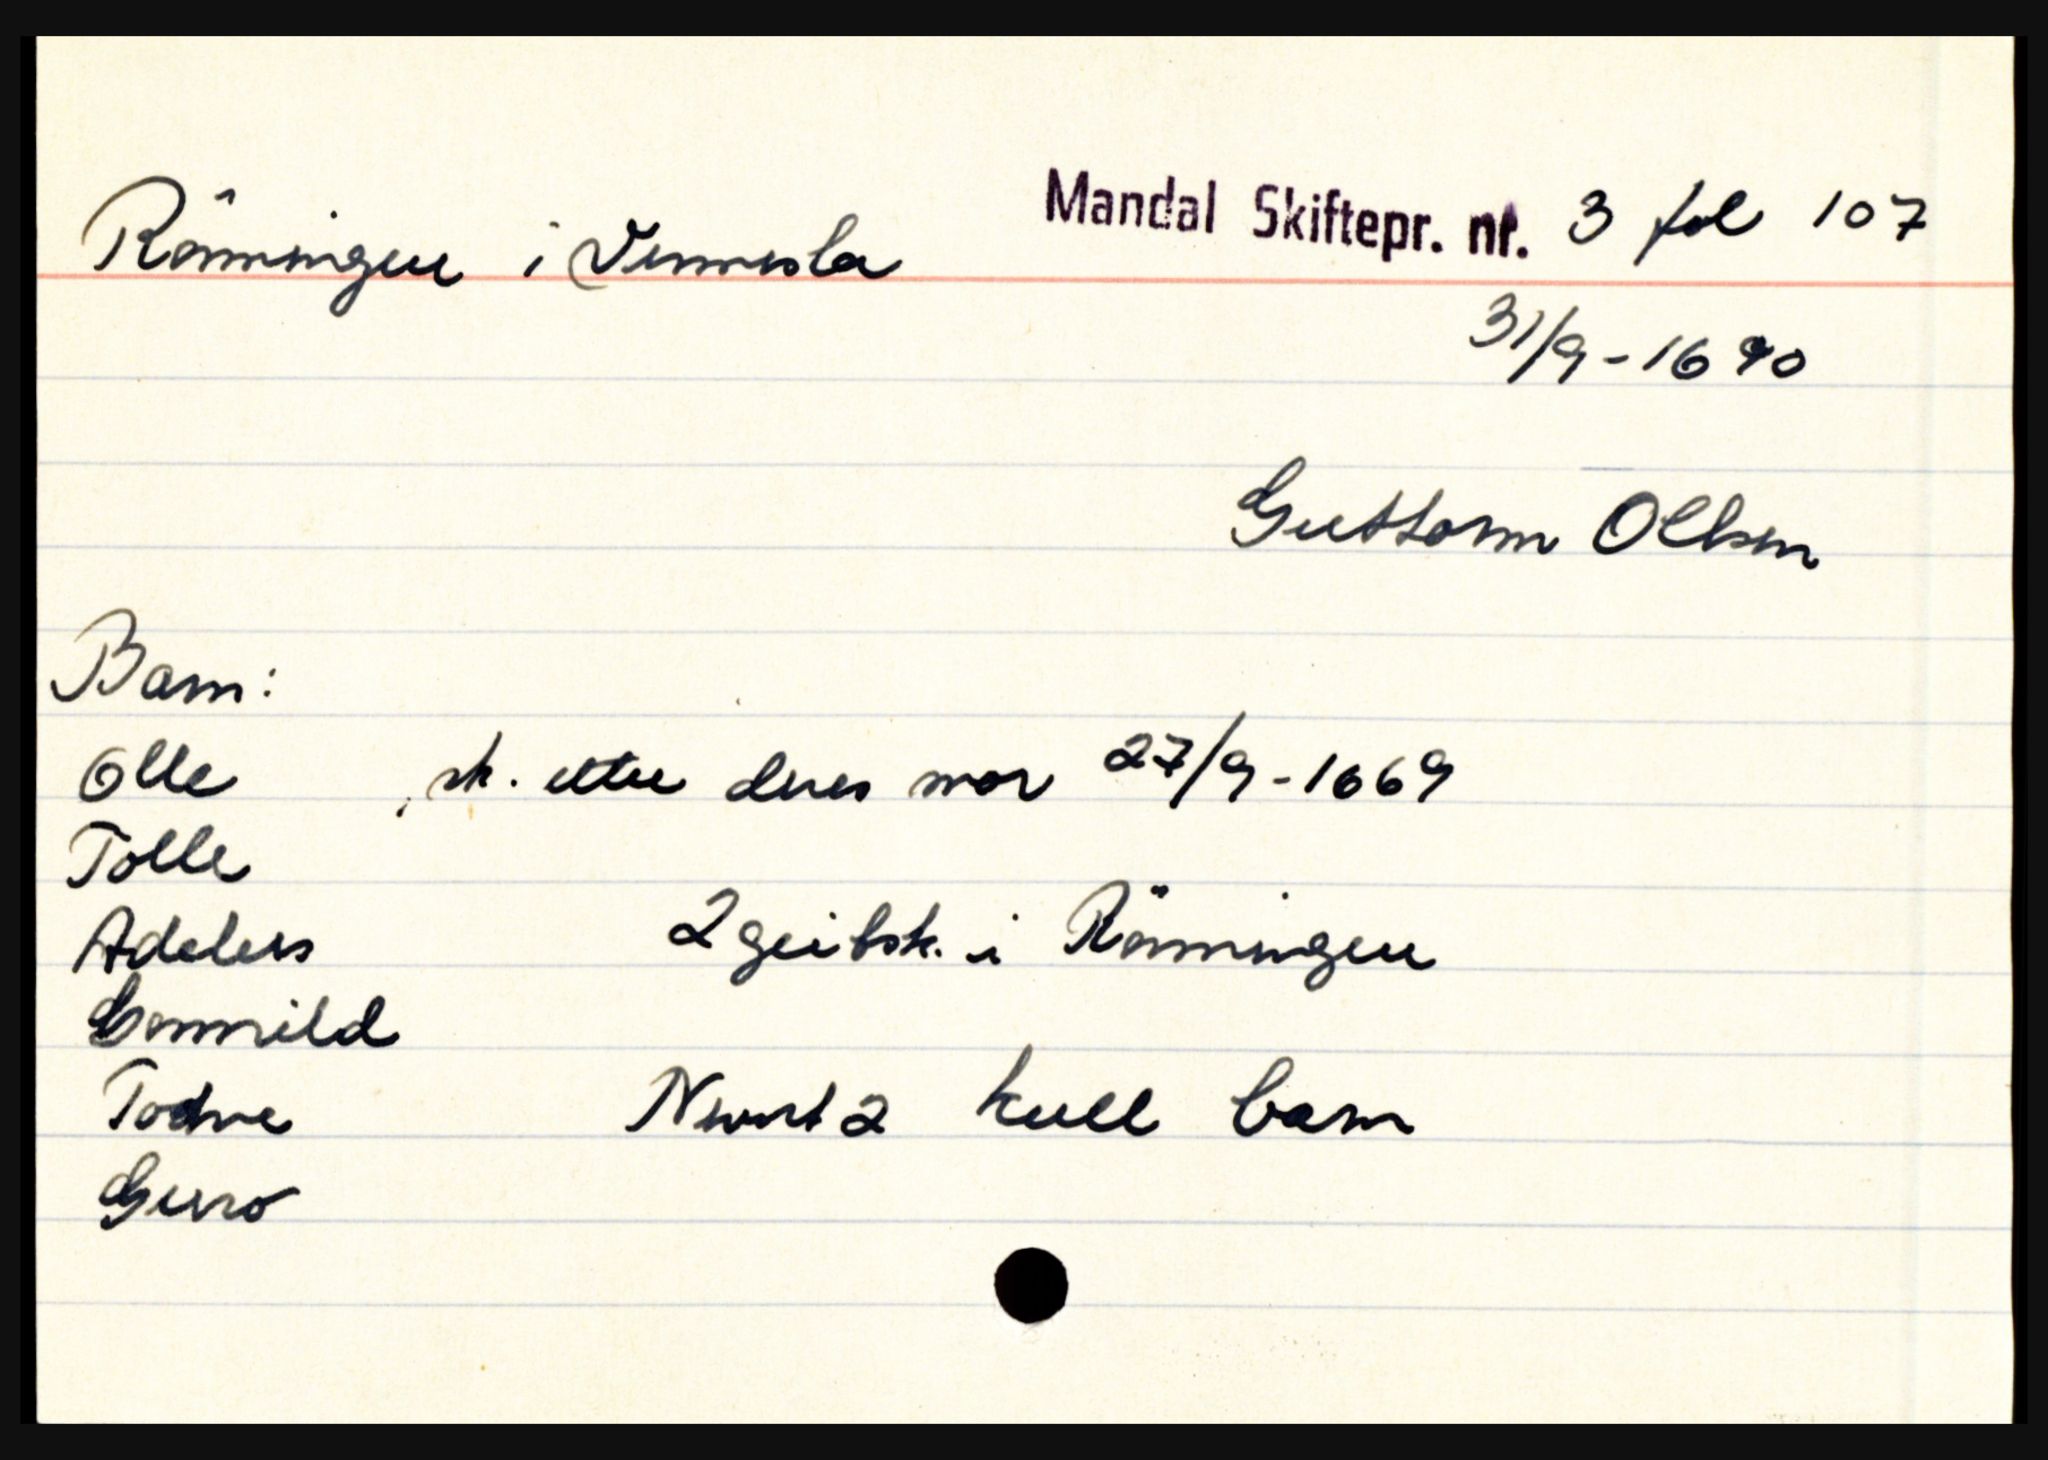 Rönningen i Vennesla Mandal Skiftepr. nr. 3 fol 107
31/9-1690
Guttorm Olsen
Barn:
Olle , sk. etter deres mor 27/9-1669
Tolle
Adelus 2 geibsk. i Rönningen
Gonnild
Todne Nevnt 2 kull barn
Guro